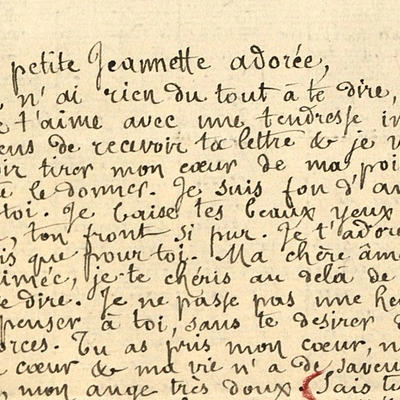 petite Jeannette adorée,
, n'ai rien du tout à te dire,
t'aime avec une tendresse in
ens de recevoir ta lettre & je v
oir tirer mon cœur de ma poi
le donner. Je suis fou d'am
toi. Je baise tes beaux yeux
, ton front si pur. Je t'adore
is que pour toi. Ma chère âme
aimée, je te chéris au delà de
e dire. Je ne passe pas une he
penser à toi, sans te desirer
orces. Tu as pris mon cœur, n
cœur & ma vie n'a de saveu
, mon ange très doux. Sais tu